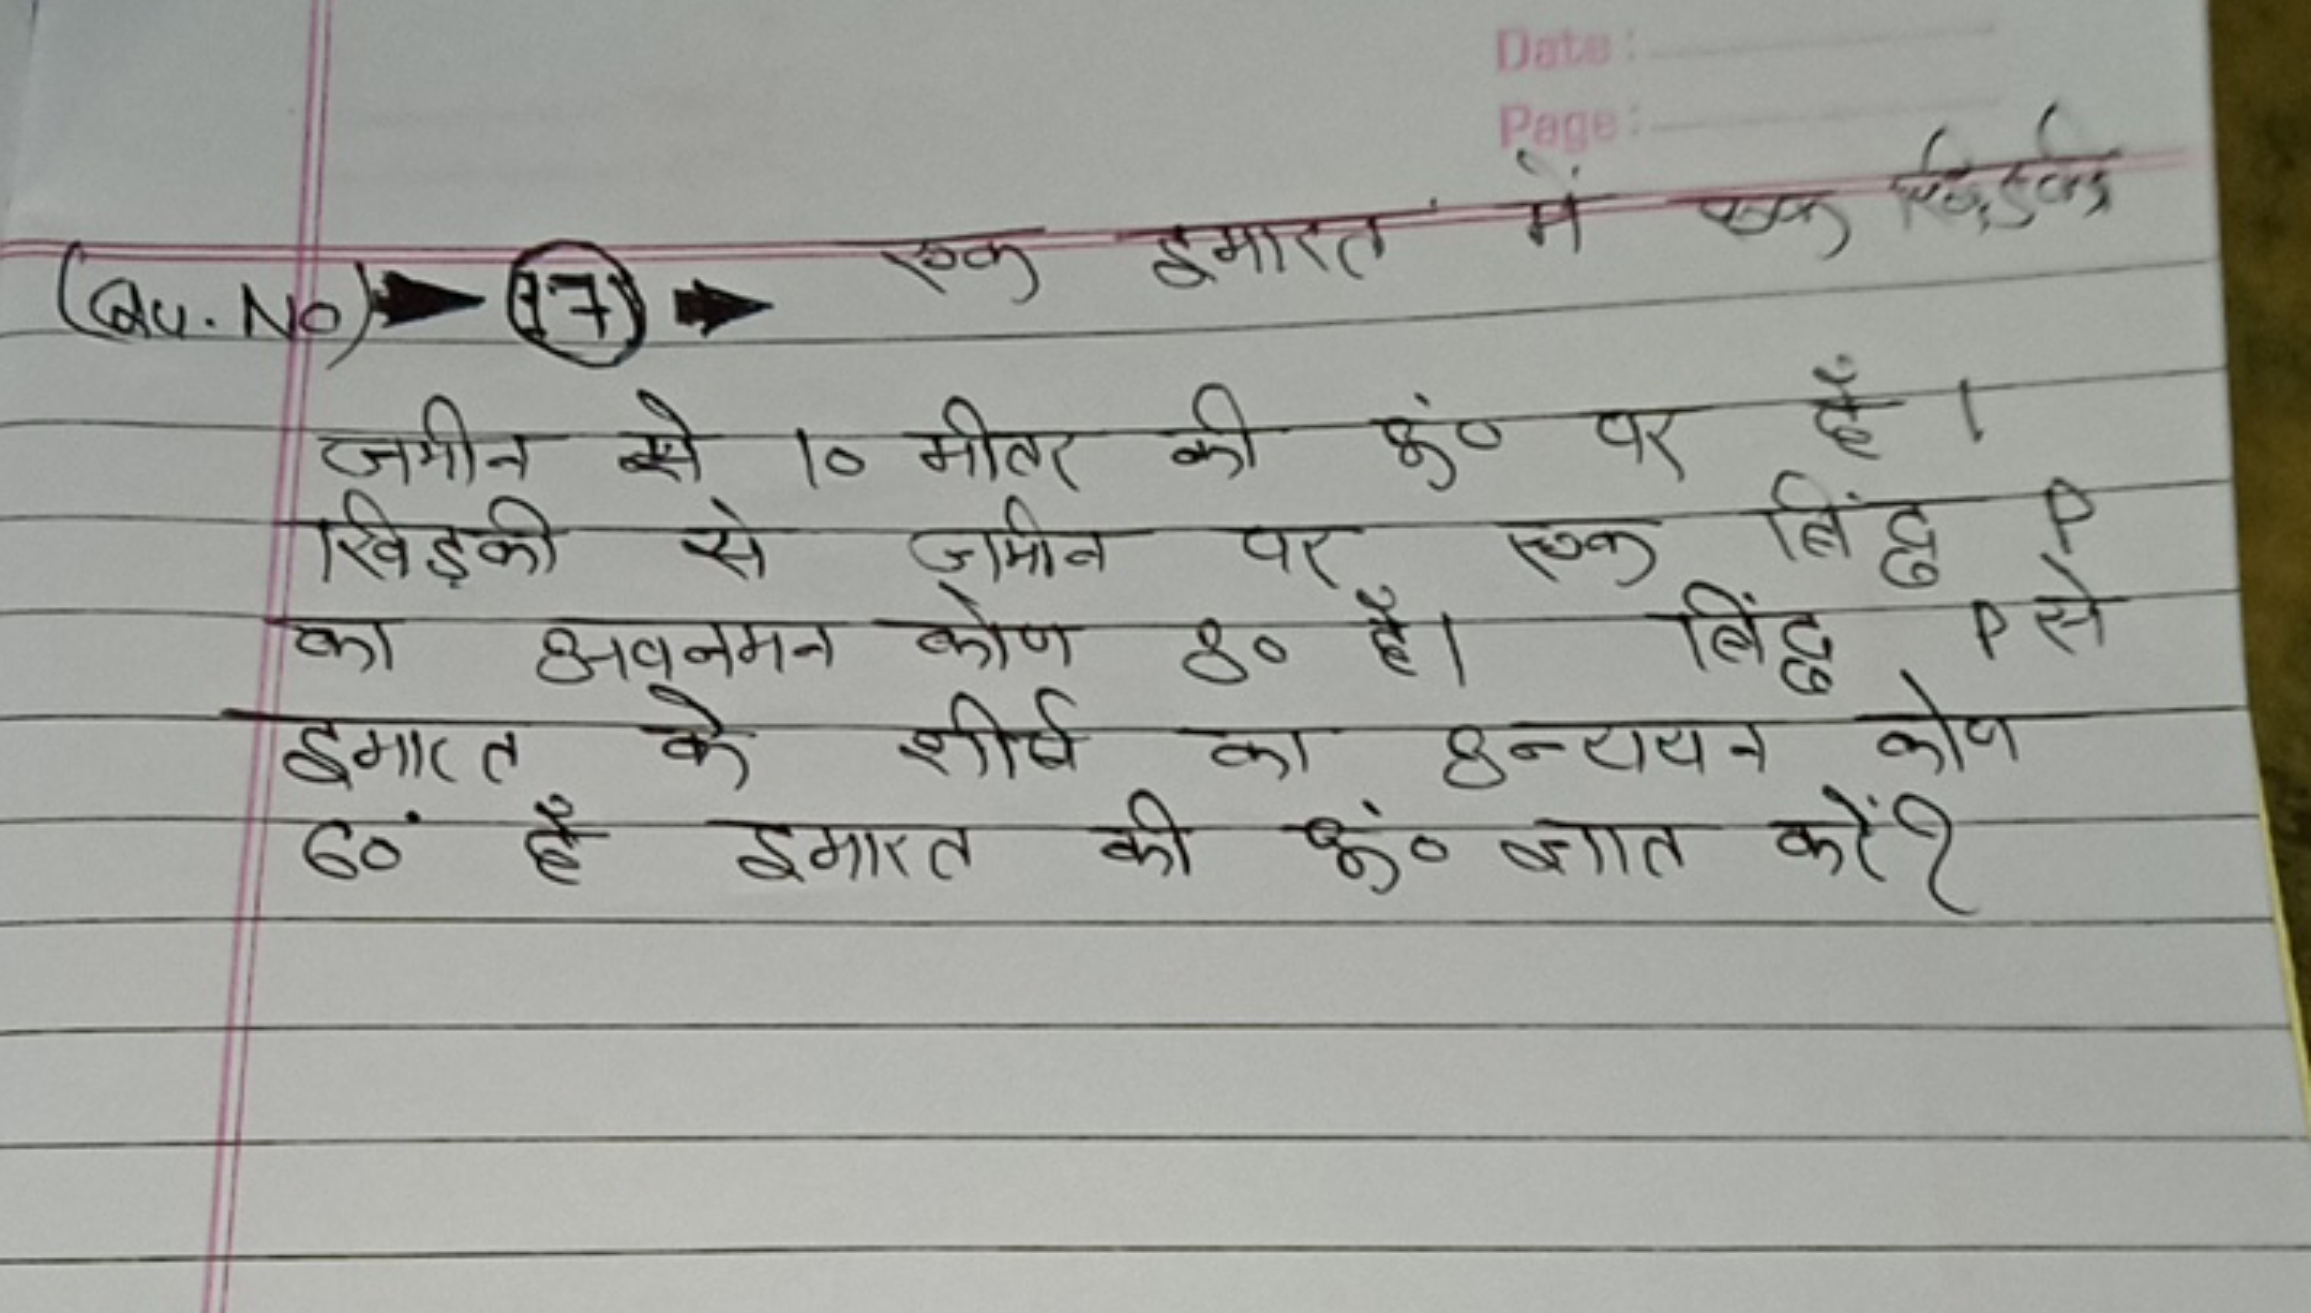 Date:
Page:
(Qu. No) → (17) → एक इमारत में एक खिड़की
जमीन से 10 मीटर की ऊं० पर है।
खिड़की से जमीन पर एक बिंदु P
का अवनमन कोण 30 है। बिंदु P से
इमारत के शीर्ष का उन्ययन कोण
60° है इमारत की ऊं० ज्ञात करें?